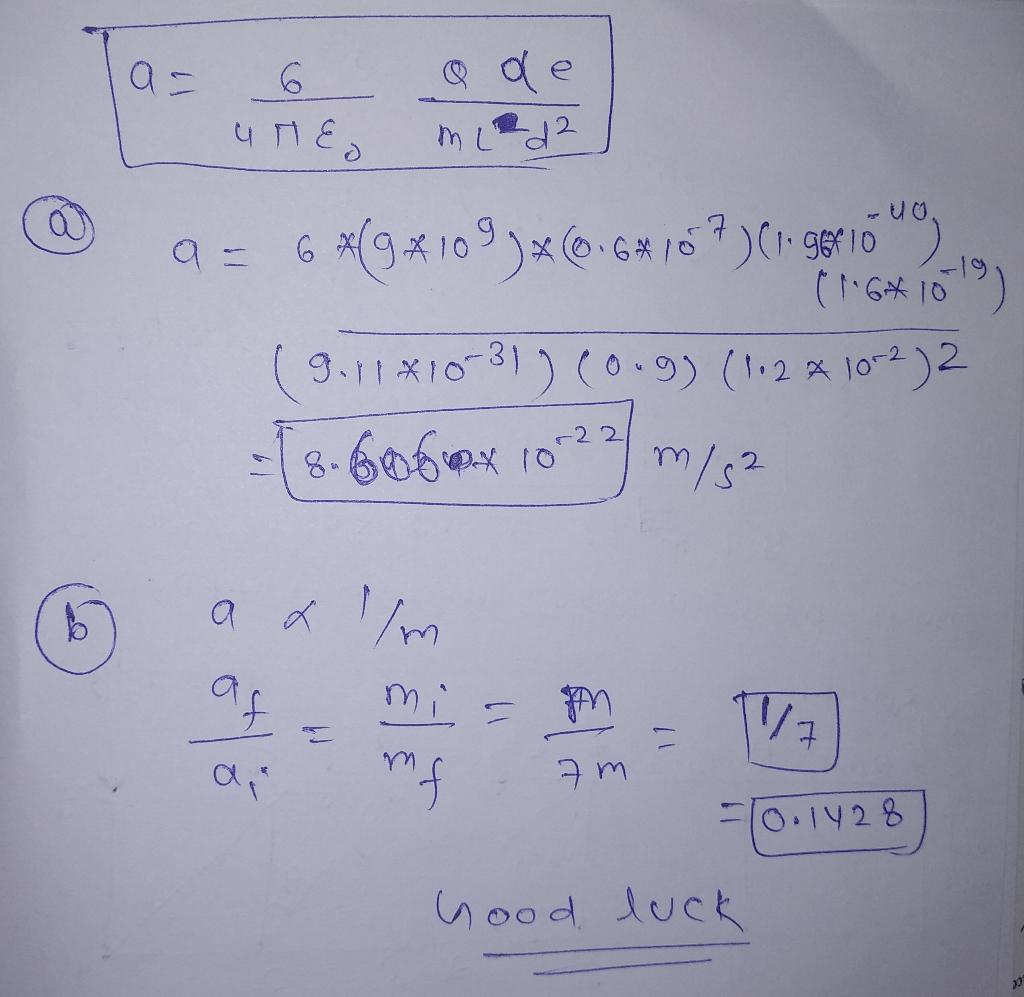 a = 6 / 4πε₀ Q α e / m L d²
(a) a = 6 * (9 * 10⁹) * (0.6 * 10⁻⁷) (1.96 * 10⁻⁴⁰) (1.6 * 10⁻¹⁹)
(9.11 * 10⁻³¹) (0.9) (1.2 * 10⁻²)2
= 8.606 * 10⁻²² m/s²
(b) a α 1/m
a_f / a_i = m_i / m_f = m / 7m = 1/7
= 0.1428
Good luck